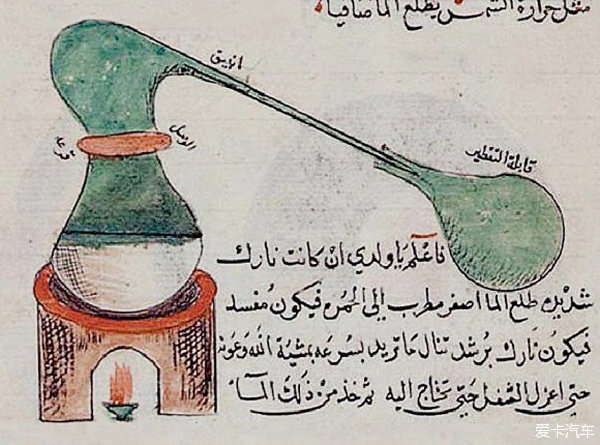 مثل حرارة الشمس يطلع الما صافيا
انبيق
الوصل
قرعة
قابلة التقطير
فاعلم يا ولدي ان كانت نارك
شديده طلع الما اصفر مطرب الى الحمره فيكون مفسد
فيكون نارك برشد تنال ما تريد بسرعه بمشية الله وعونه
حتى اعزل الثفل حتى تحتاج اليه ثم خذ من ذلك المآء
爱卡汽车